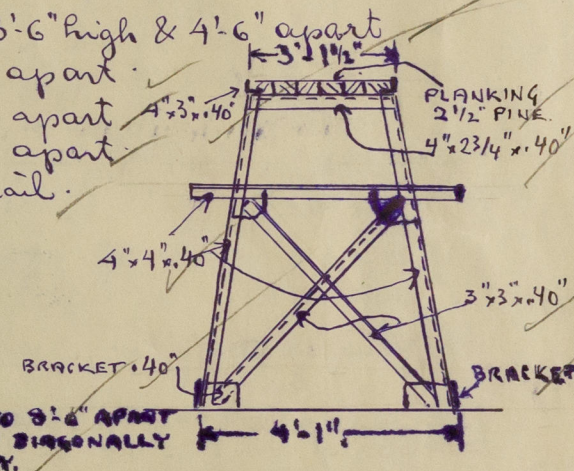 3'-6" high & 4'-6" apart
apart.
apart
apart.
ail.
3'-1 1/2"
4"x3"x.40"
PLANKING
2 1/2" PINE.
4"x2 3/4"x.40"
4"x4"x.40"
3"x3"x.40"
BRACKET .40"
BRACKET
O 8'-6" APART
DIAGONALLY
Y.
4'-1"